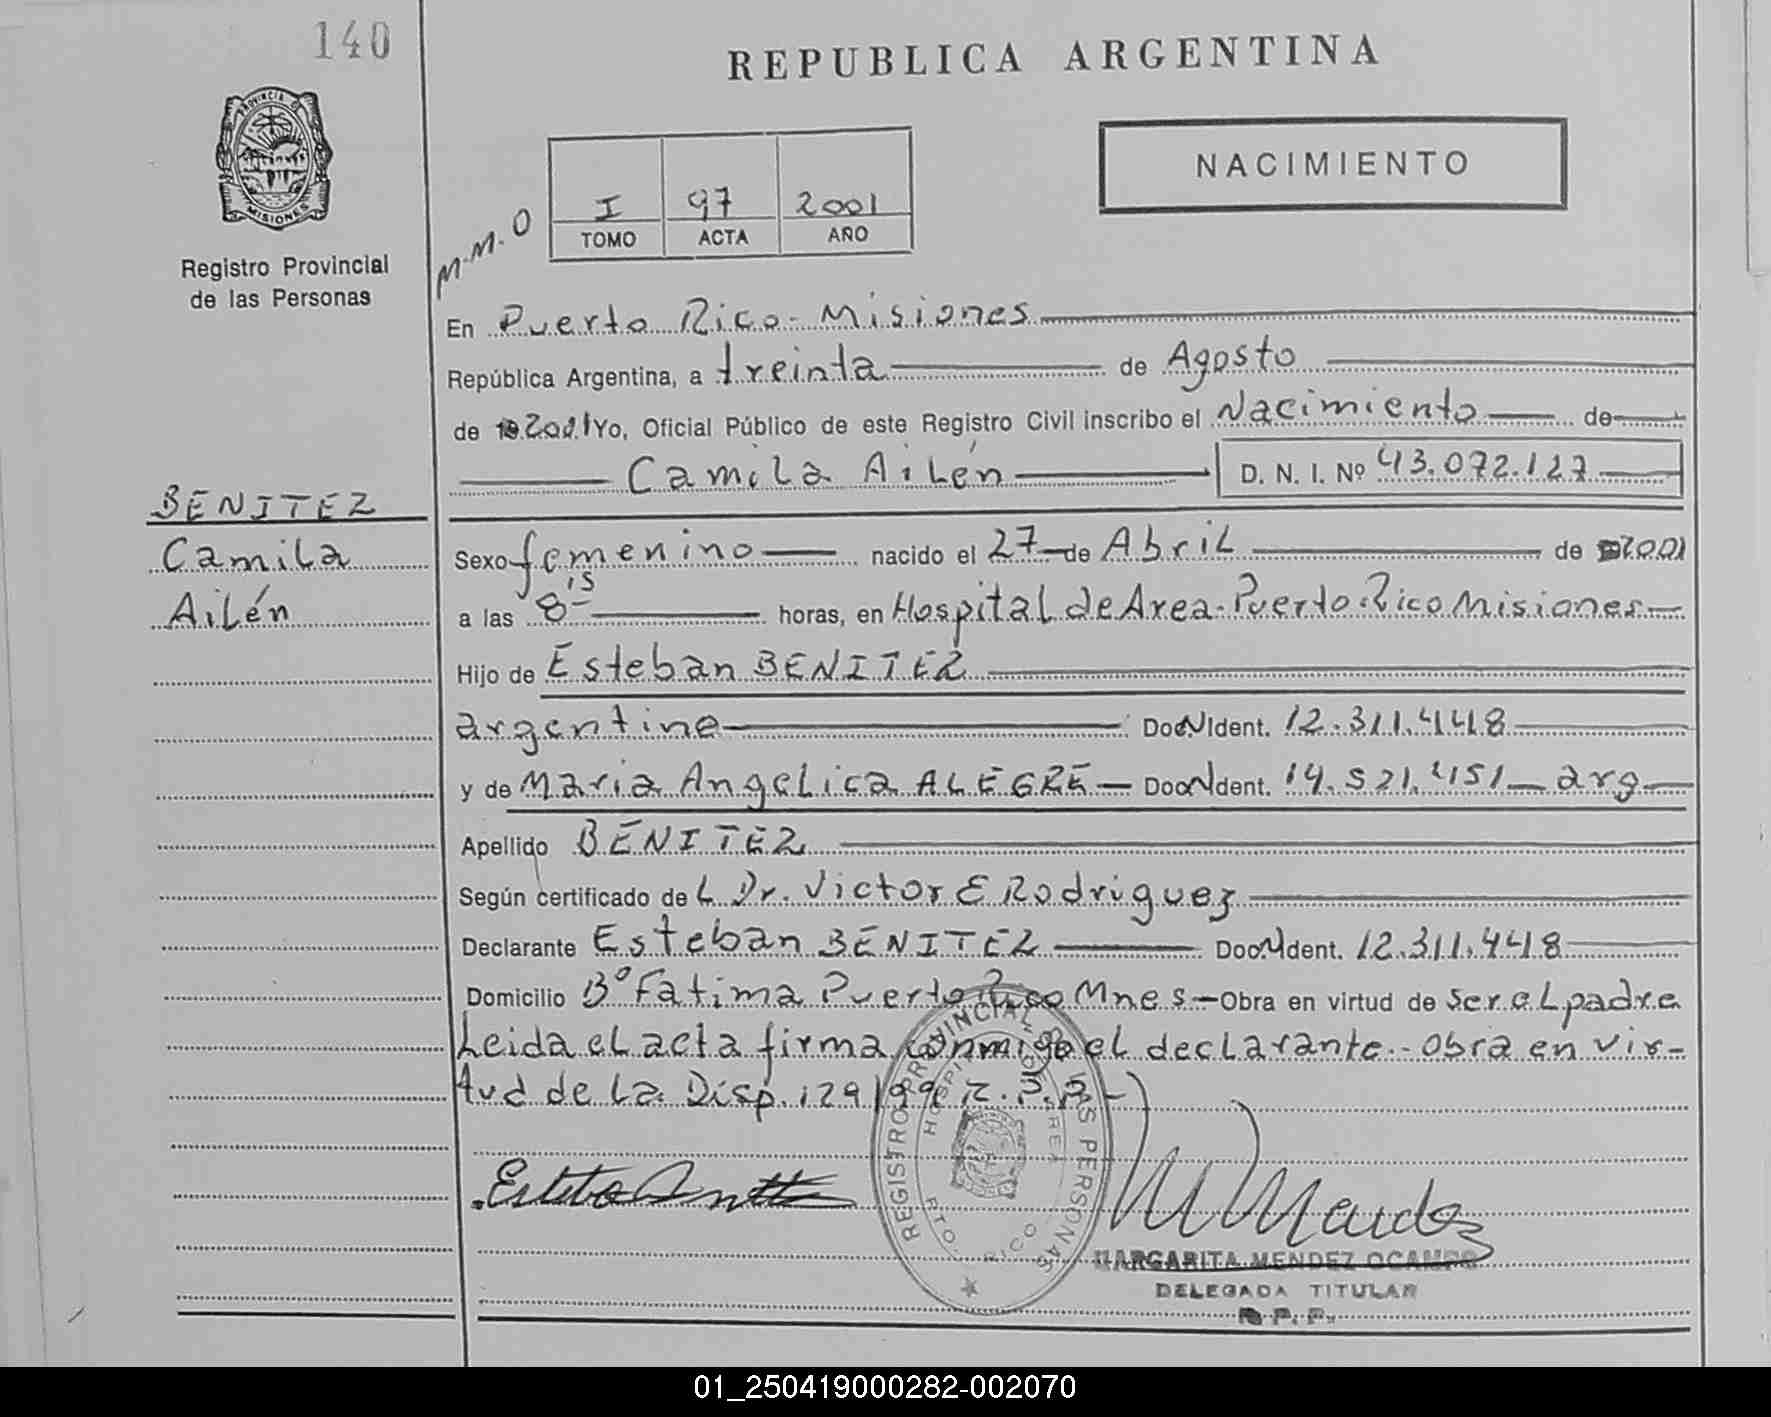 140
REPUBLICA ARGENTINA
PROVINCIA DE
MISIONES
Registro Provincial
de las Personas
NACIMIENTO
I 97 2001
TOMO ACTA AÑO
M.M.O
En Puerto Rico - Misiones
República Argentina, a treinta de Agosto
de 2001 Yo, Oficial Público de este Registro Civil inscribo el Nacimiento de
Camila Ailén D. N. I. Nº 43.072.127
BENITEZ
Camila
Ailén
Sexo femenino nacido el 27 de Abril de 2001
a las 8 15 horas, en Hospital de Area - Puerto Rico Misiones
Hijo de Esteban BENITEZ
argentino Doc. Ident. 12.311.448
y de Maria Angelica ALEGRE Doc. Ident. 14.521.451 - arg
Apellido BENITEZ
Según certificado de L Dr. Victor E Rodriguez
Declarante Esteban BENITEZ Doc. Ident. 12.311.448
Domicilio Bº Fatima Puerto Rico Mnes - Obra en virtud de ser el padre
Leida el acta firma conmigo el declarante.- Obra en vir-
tud de la Disp. 129/99 R.P.P.-
REGISTRO PROVINCIAL DE LAS PERSONAS
HOSPITAL DE AREA
PTO. RICO
MARGARITA MENDEZ OCAMPO
DELEGADA TITULAR
R. P. P.
01_250419000282-002070